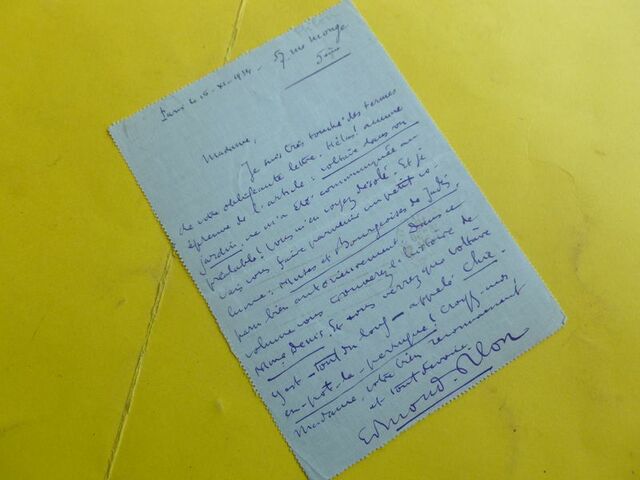 Paris le 15-XI-1934 - 57, rue Monge
5ème
Madame,
Je suis très touché des termes
de votre obligeante lettre. Hélas! aucune
épreuve de l'article: Voltaire dans son
jardin, ne m'a été communiquée au
préalable! Vous m'en voyez désolé. Et je
vais vous faire parvenir un petit vo-
lume: Muses et Bourgeoises de Jadis,
paru bien antérieurement. Dans ce
volume vous trouverez l'histoire de
Mme Denis. Et vous verrez que Voltaire
y est - tout du long - appelé Chie-
en-pot-la-perruque! Croyez-moi
Madame, votre bien reconnaissant
et tout dévoué.
Edmond Pilon